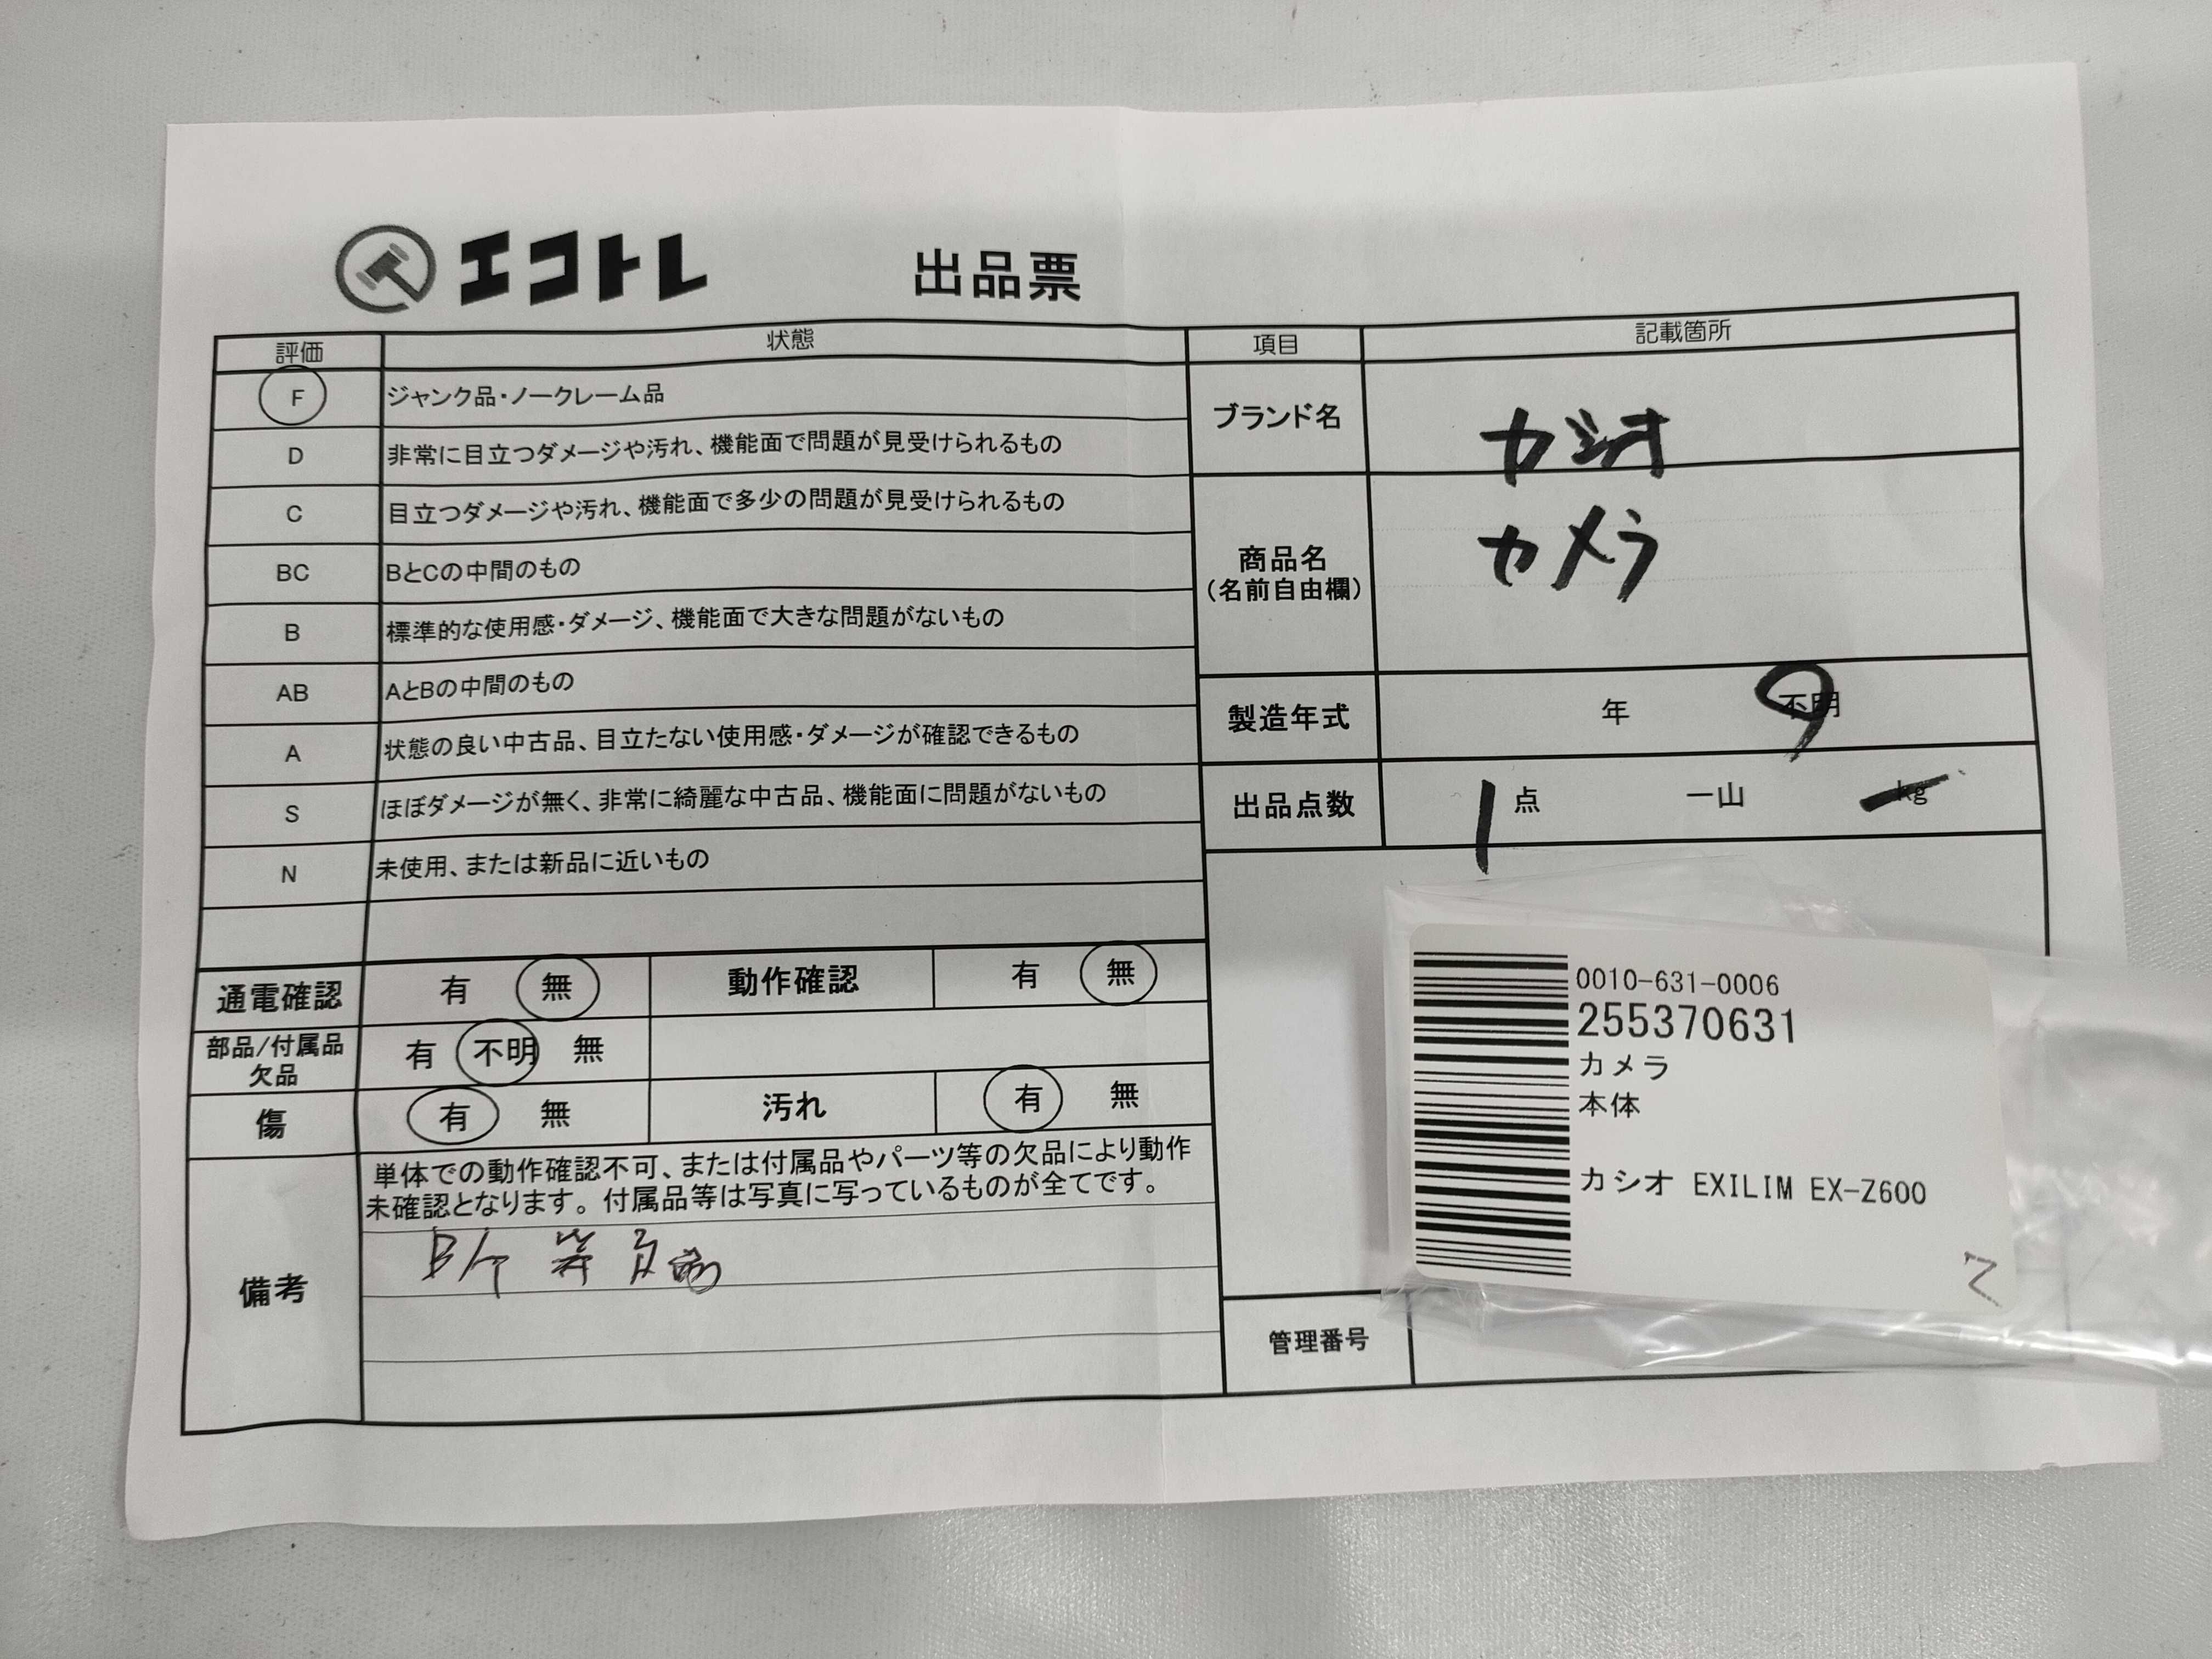 エコトレ 出品票
評価 状態
F ジャンク品・ノークレーム品
D 非常に目立つダメージや汚れ、機能面で問題が見受けられるもの
C 目立つダメージや汚れ、機能面で多少の問題が見受けられるもの
BC BとCの中間のもの
B 標準的な使用感・ダメージ、機能面で大きな問題がないもの
AB AとBの中間のもの
A 状態の良い中古品、目立たない使用感・ダメージが確認できるもの
S ほぼダメージが無く、非常に綺麗な中古品、機能面に問題がないもの
N 未使用、または新品に近いもの
通電確認 有 無 動作確認 有 無
部品/付属品
欠品 有 不明 無
傷 有 無 汚れ 有 無
備考
単体での動作確認不可、または付属品やパーツ等の欠品により動作
未確認となります。付属品等は写真に写っているものが全てです。
項目 記載箇所
ブランド名 カシオ
商品名
(名前自由欄) カメラ
製造年式 年 不明
出品点数 1 点 一山 kg
管理番号
0010-631-0006
255370631
カメラ
本体
カシオ EXILIM EX-Z600